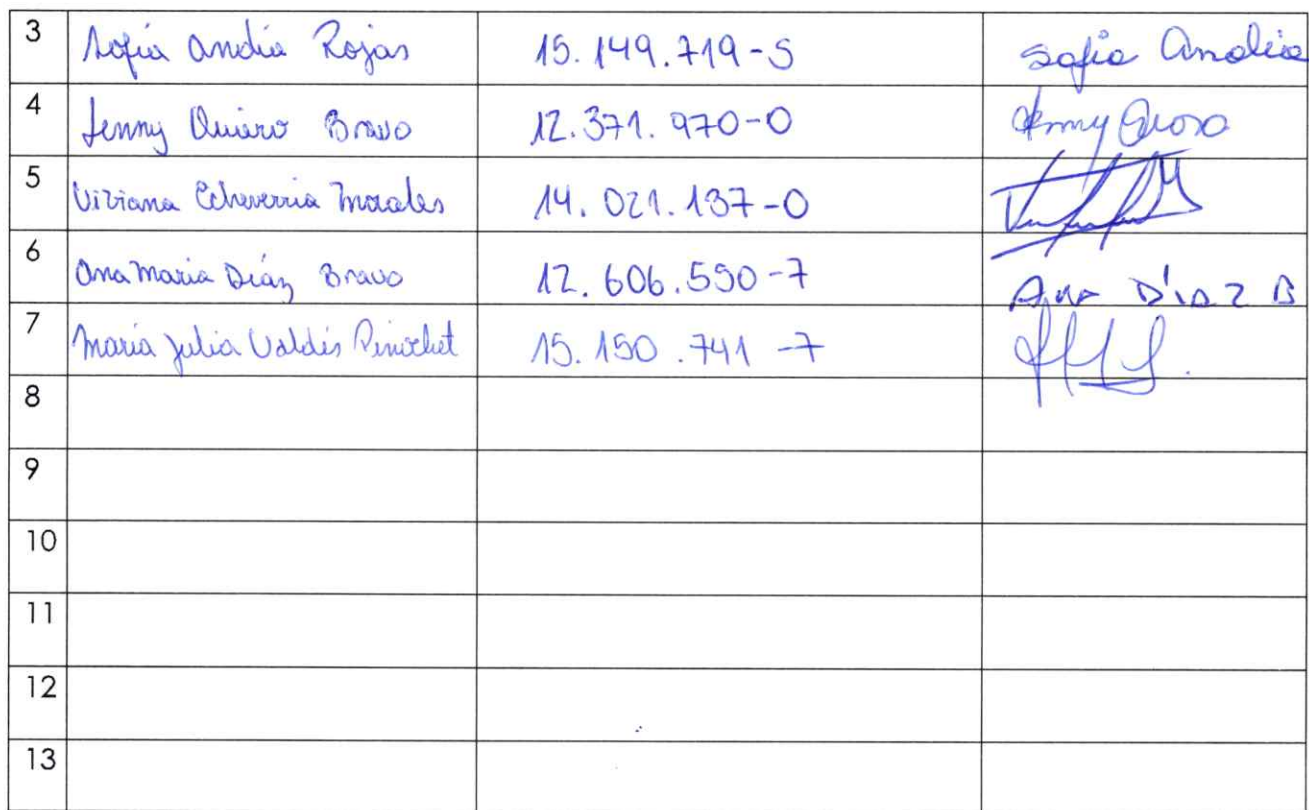 3 Sofia Andia Rojas 15.149.719-5 Sofia Andia
4 Jenny Bravo 12.371.970-0
5 Viviana Echeverria Morales 14.021.137-0
6 Ana Maria Diáz Bravo 12.606.550-7 Ana Díaz B
7 María Julia Valdés Pinochet 15.150.741-7
8
9
10
11
12
13